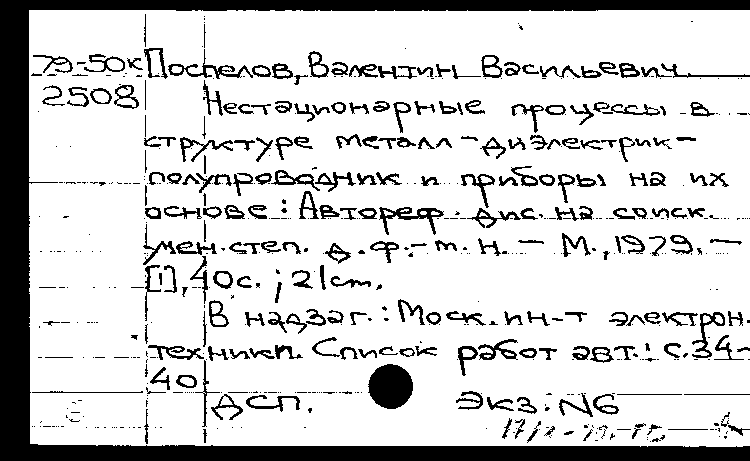 79-50к Поспелов, Валентин Васильевич.
2508 Нестационарные процессы в
структуре металл-диэлектрик-
полупроводник и приборы на их
основе: Автореф. дис. на соиск.
учен. степ. д.ф.-м.н. - М., 1979. -
[1], 40с.; 21см.
В надзаг.: Моск. ин-т электрон.
техники. Список работ авт.: с.34-
40.
ДСП. Экз: N6